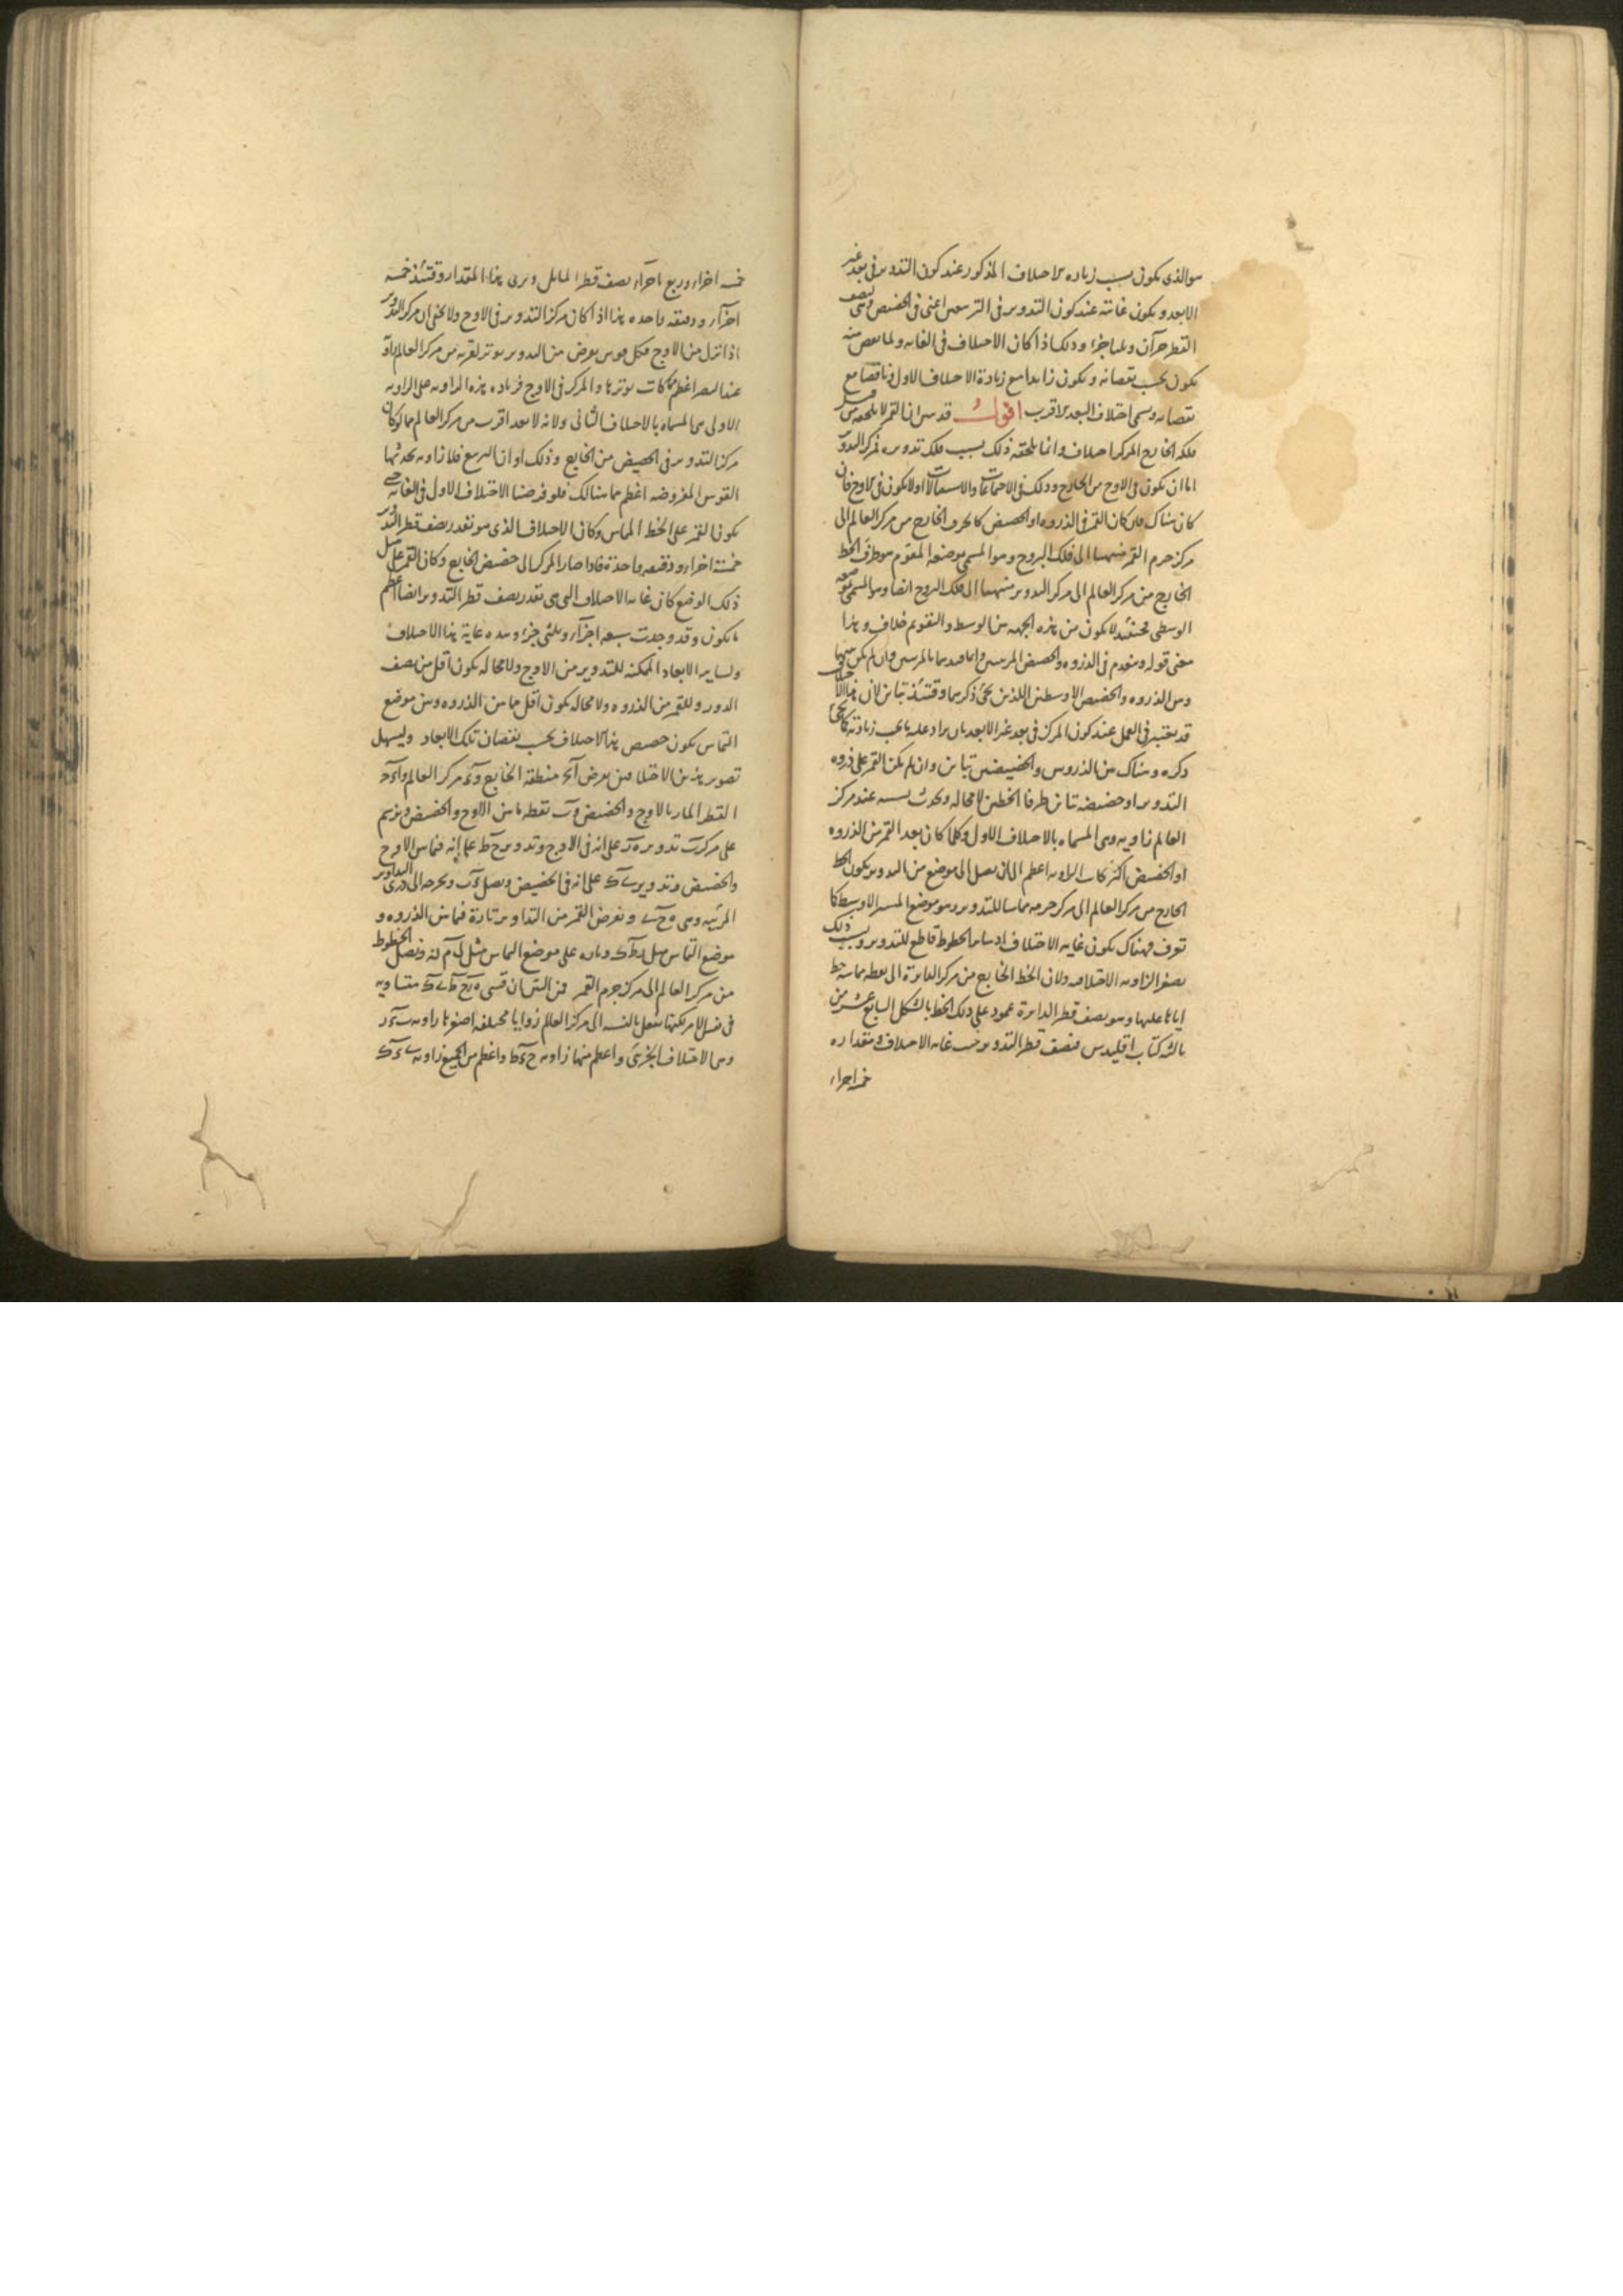 هو الذى يكون بسبب زيادة الاختلاف المذكور عند كون التدوير فى بعد غير
الابعد ويكون غايته عند كون التدوير فى التربيعين اعنى فى الحضيض وهى نصف
القطر جزآن وثلثا جزء وذلك اذا كان الاختلاف فى الغاية ولما نقص منه
يكون بحسب نقصانه ويكون زايدا مع زيادة الاختلاف الاول وناقصا مع
نقصانه ويسمى اختلاف البعد الاقرب اقول قد مر ان القمر لا يلحقه من
فلكه الخارج المركز اختلاف وانما يلحقه ذلك بسبب فلك تدويره فمركز التدوير
اما ان يكون فى الاوج من الخارج وذلك فى الاجتماعات والاستقبالات او لا يكون فى الاوج فان
كان هناك فان كان القمر فى الذروة او الحضيض كان طرف الخارج من مركز العالم الى
مركز جرم القمر منتهيا الى فلك البروج وهو المسمى بموضعه المقوم هو طرف الخط
الخارج من مركز العالم الى مركز التدوير منتهيا الى فلك البروج ايضا وهو المسمى بموضعه
الوسطى فحينئذ لا يكون من هذه الجهة بين الوسط والتقويم خلاف وهذا
معنى قوله وينعدم فى الذروة والحضيض المرئيين وانما قيدهما بالمرئيين وان لم يكن بينهما
وبين الذروة والحضيض الاوسطين اللذين يجئ ذكرهما وقتئذ تباين لان هذا الاختلاف
قد يعتبر فى العمل عند كون المركز فى بعد غير الابعد بان يزاد عليه ما يجب زيادته كما يجئ
ذكره وهناك بين الذروتين والحضيضين تباين وان لم يكن القمر على ذروة
التدوير او حضيضه تباين طرفا الخطين لا محالة ويحدث بسببه عند مركز
العالم زاوية وهى المسماة بالاختلاف الاول وكلما كان بعد القمر من الذروة
او الحضيض اكثر كانت الزاوية اعظم الى ان يصل الى موضع من التدوير يكون الخط
الخارج من مركز العالم الى مركز جرمه مماسا للتدوير وهو موضع المسير الاوسط كما
تعرف فهناك يكون غاية الاختلاف اذ ساير الخطوط قاطع للتدوير وبسبب ذلك
يصغر الزاوية الاختلافية ولان الخط الخارج من مركز الدايرة الى نقطة مماسة خط
اياها عليها وهو نصف قطر الدايرة عمود على ذلك الخط بالشكل السابع عشر من
ثالثة كتاب اقليدس فنصف قطر التدوير جيب غاية الاختلاف ومقداره
خمسة اجزاء
خمسة اجزاء وربع باجزاء نصف قطر المايل ويرى بهذا المقدار وقتئذ خمسة
اجزاء ودقيقة واحدة هذا اذا كان مركز التدوير فى الاوج ولا يخفى ان مركز التدوير
اذا نزل من الاوج فكل قوس يفرض من التدوير يوتر لقربه من مركز العالم زاوية
عند البصر اعظم مما كانت يوترها والمركز فى الاوج فزيادة هذه الزاوية على الزاوية
الاولى هى المسماة بالاختلاف الثانى ولانه لا بعد اقرب من مركز العالم مما لو كان
مركز التدوير فى الحضيض من الخارج وذلك اوان التربيع فلا زاوية يحدثها
القوس المفروضة اعظم مما هنالك فلو فرضنا الاختلاف الاول فى الغاية حتى
يكون القمر على الخط المماس وكان الاختلاف الذى هو بقدر نصف قطر التدوير
خمسة اجزاء ودقيقة واحدة فاذا صار المركز الى حضيض الخارج وكان القمر على مثل
ذلك الوضع كان غاية الاختلاف التى هى بقدر نصف قطر التدوير ايضا اعظم
ما يكون وقد وجدت سبعة اجزاء وثلثى جزء وهذه غاية هذا الاختلاف
ولساير الابعاد الممكنة للتدوير من الاوج ولا محالة يكون اقل من نصف
الدور وللقمر من الذروة ولا محالة يكون اقل مما بين الذروة وبين موضع
التماس يكون حصص هذا الاختلاف بحسب نقصان تلك الابعاد وليسهل
تصوير هذين الاختلافين نفرض منطقة الخارج مركز العالم
القطر المار بالاوج والحضيض نقطة ما بين الاوج والحضيض ونرسم
على مركز تدوير على انه فى الاوج وتدوير على انه فيما بين الاوج
والحضيض وتدوير على انه فى الحضيض ونصل ونخرجه الى ذرى التداوير
المرئية وهى ونفرض القمر من التداوير تارة فيما بين الذروة و
موضع التماس مثل وتارة على موضع التماس مثل ونصل الخطوط
من مركز العالم الى مركز جرم القمر فمن البين ان قسى متساوية
فى نفس الامر لكنها تفعل بالنسبة الى مركز العالم زوايا مختلفة اصغرها زاوية
وهى الاختلاف الجزئى واعظم منها زاوية واعظم من الجميع زاوية